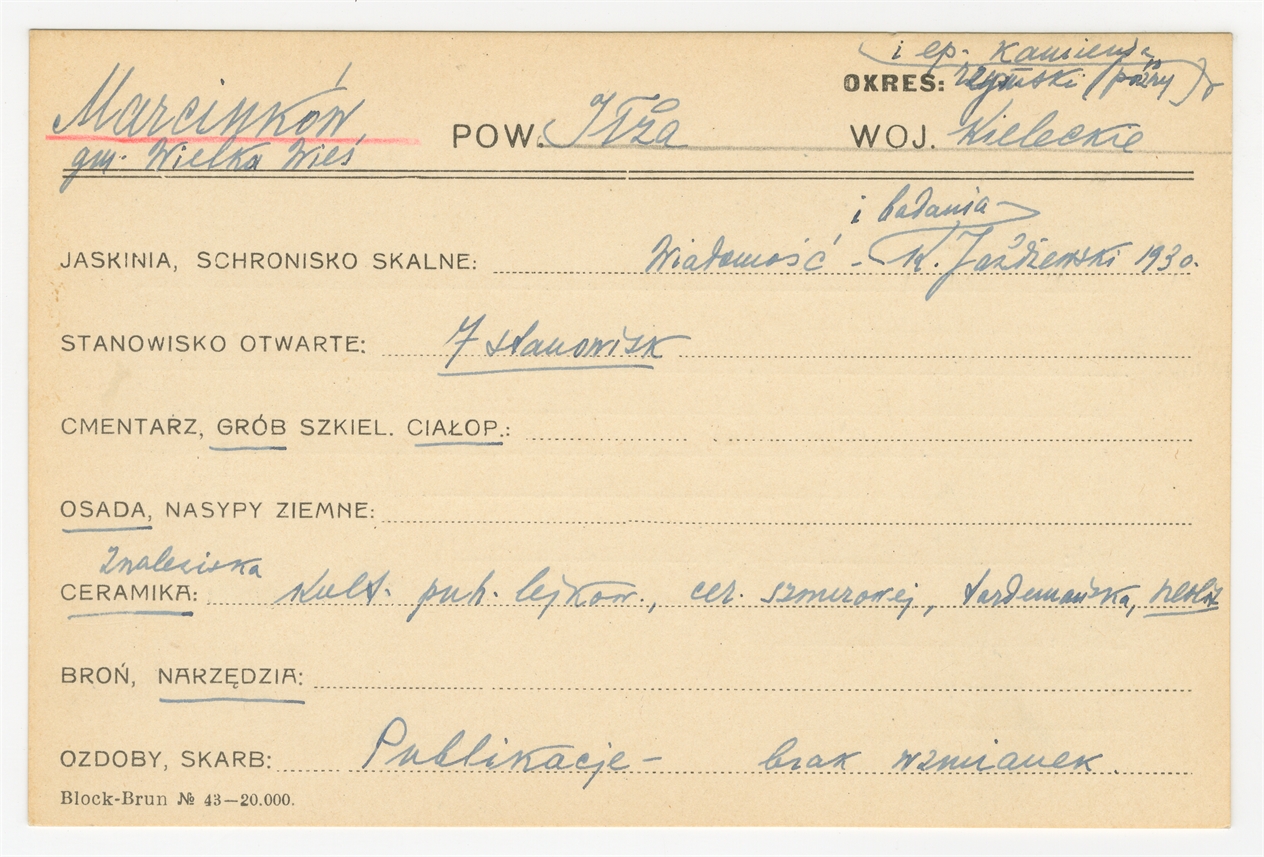 i ep. Kamienia
OKRES: rzymski (późny)
Marcinków, POW. Iłża WOJ. Kieleckie
gm. Wielka Wieś
i badania
JASKINIA, SCHRONISKO SKALNE: Wiadomość - K. Jażdżewski 1930.
STANOWISKO OTWARTE: 7 stanowisk
CMENTARZ, GRÓB SZKIEL. CIAŁOP.:
OSADA, NASYPY ZIEMNE:
Znaleziska
CERAMIKA: Kult. puh. lejkow., cer. sznurowej, tardenuaska, neolit
BROŃ, NARZĘDZIA:
OZDOBY, SKARB: Publikacje - brak wzmianek.
Block-Brun № 43—20.000.